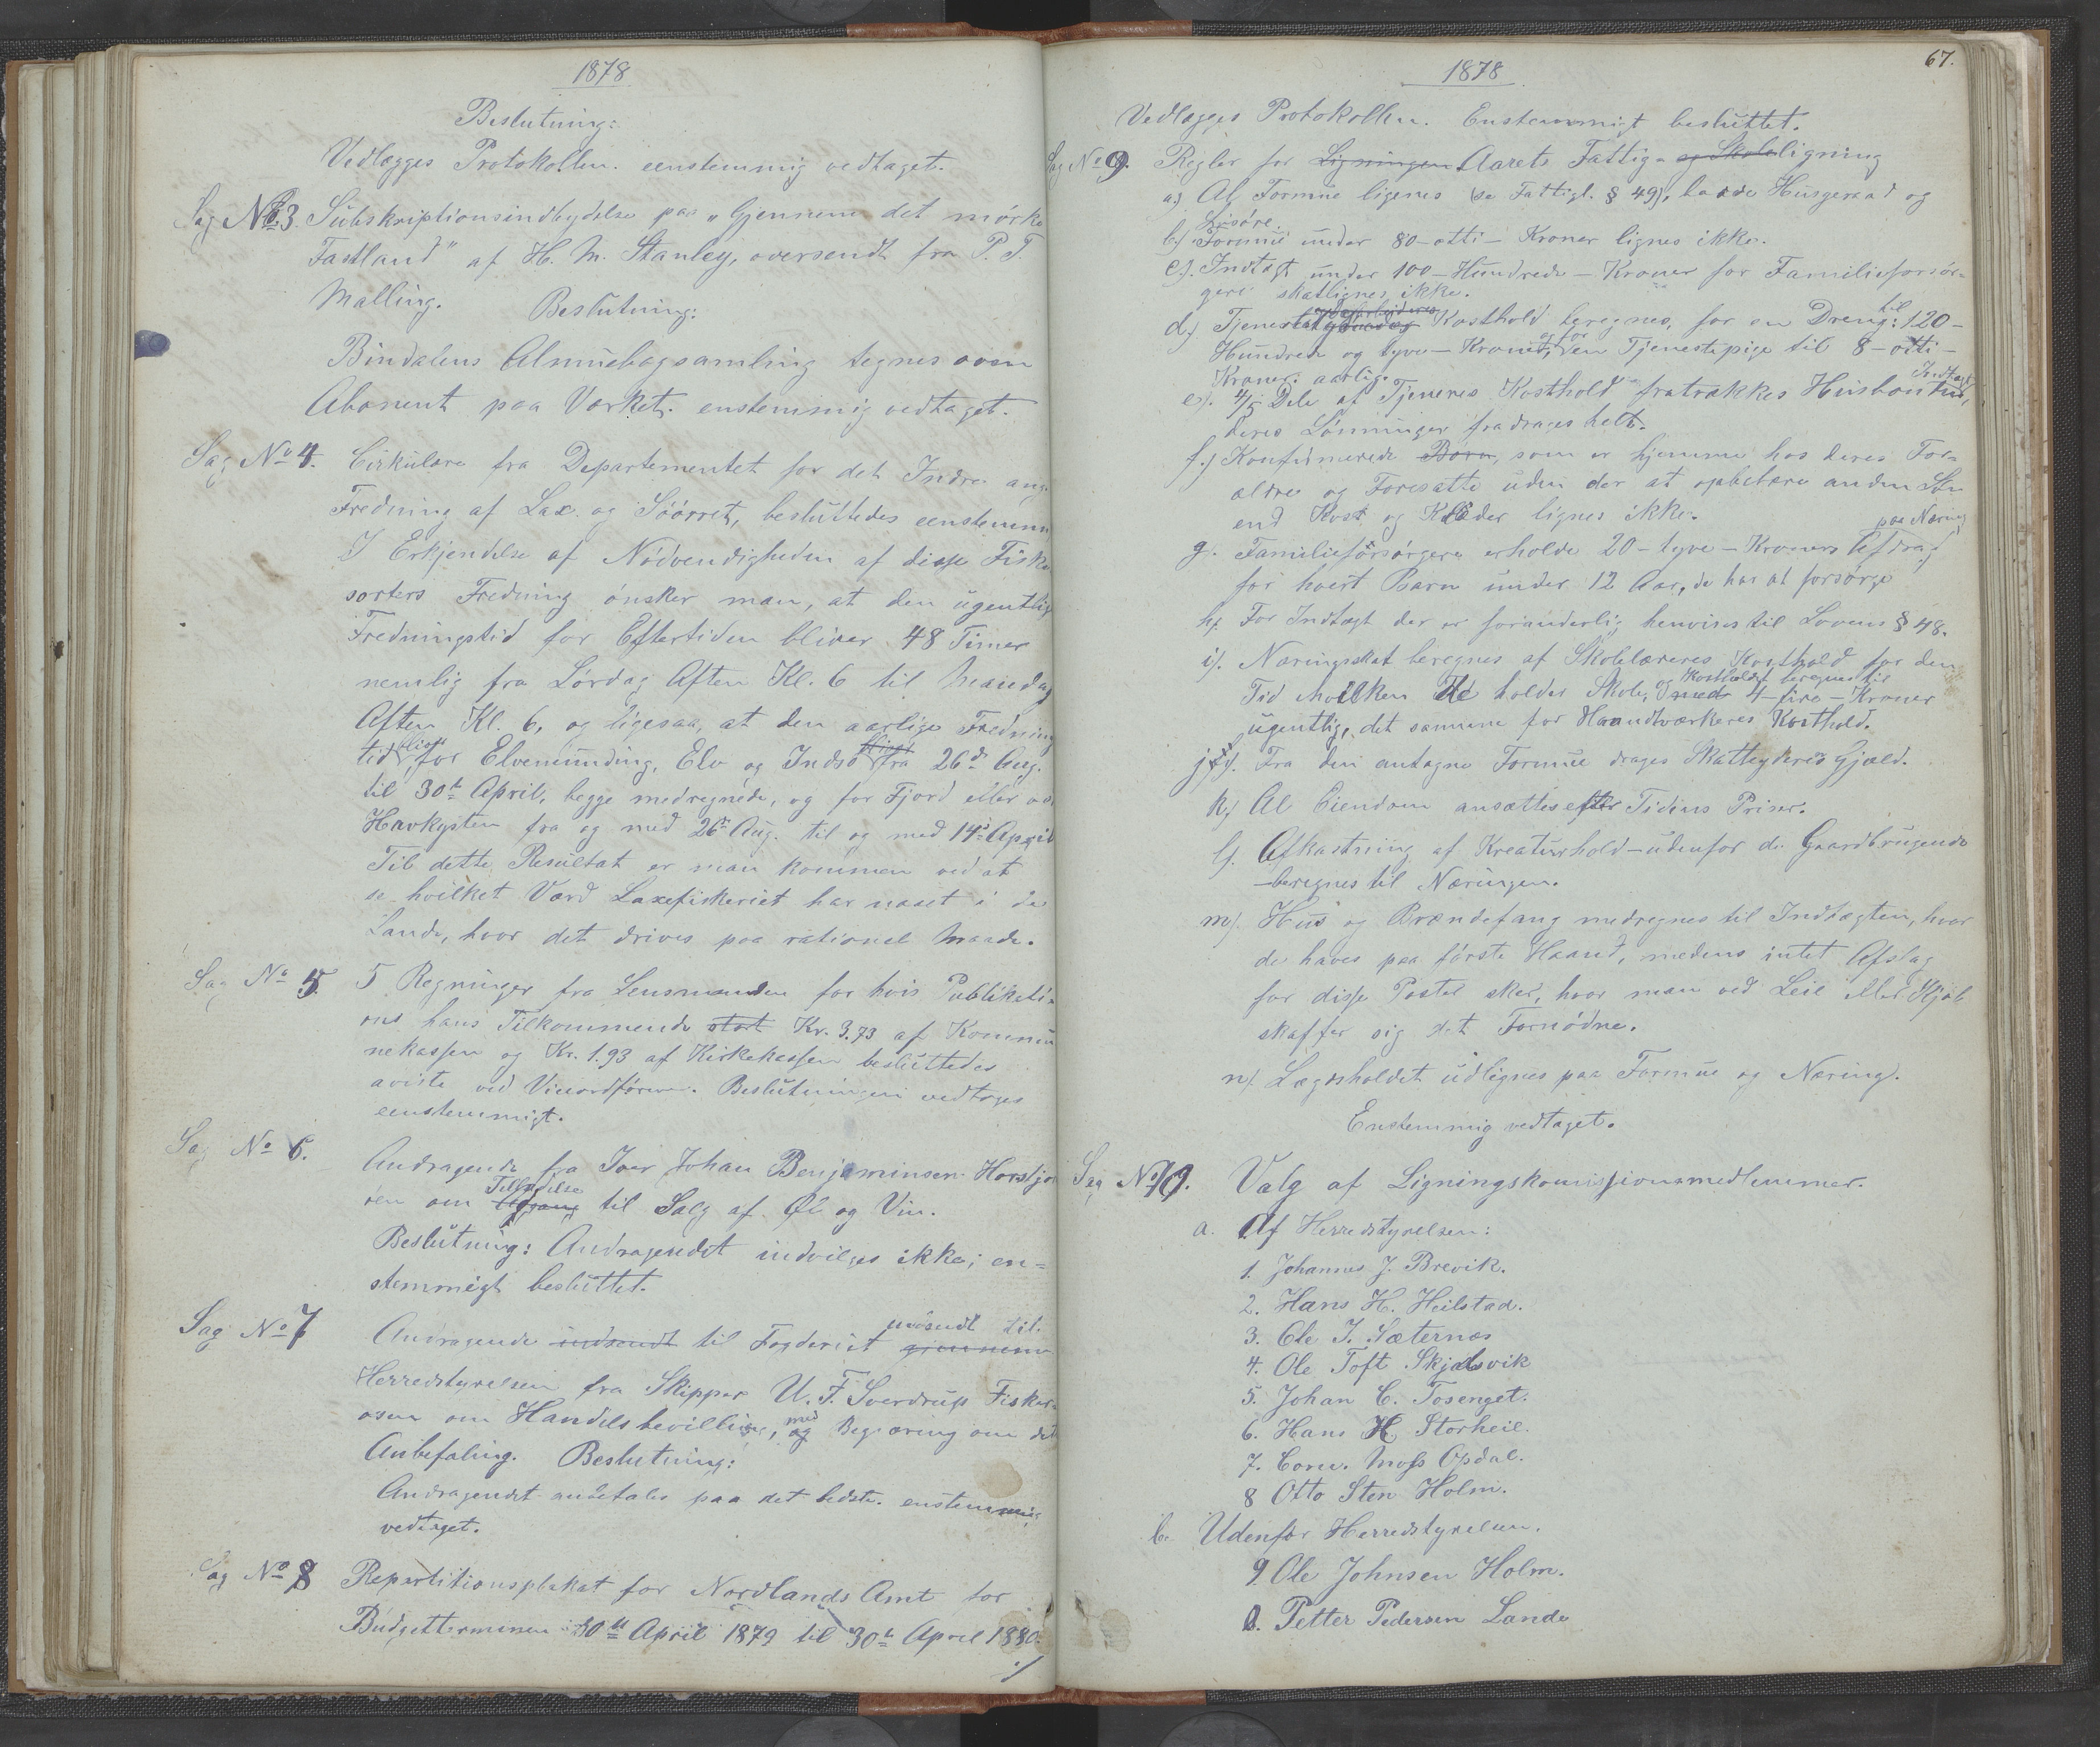 1878
Beslutning:
Vedlægges Protokollen. eenstemmig vedtaget.
Sag No 3. Subskriptionsindbydelse paa "Gjennem det mørke
Fastland" af H. M. Stanley, oversendt fra P. T.
Malling. Beslutning:
Bindalens Almuebogsamling tegnes som
Abonent paa Værket. enstemmig vedtaget.
Sag No 4. Cirkulære fra Departementet for det Indre ang.
Fredning af Lax og Søørret, besluttedes eenstemm
I Erkjendelse af Nødvendigheden af disse Fiske
sorters Fredning ønsker man, at den ugentlig
Fredningstid for Eftertiden bliver 48 Timer
nemlig fra Lørdag Aften Kl. 6 til Mandag
Aften Kl. 6, og ligesaa, at den aarlige Fredning
tid bliver for Elvemunding, Elv og Indsø bliver fra 26de Aug.
til 30te April, begge medregnede, og for Fjord eller
Havkysten fra og med 26de Aug. til og med 14de April
Til dette Resultat er man kommen ved at
se hvilket Værd Laxefiskeriet har naaet i de
Lande, hvor det drives paa rationel Maade.
Sag No 5. 5 Regninger fra Lensmanden for hvis Publikati-
ons hans Tilkommende stort Kr. 3.73 af Kommu
nekassen og Kr. 1.93 af Kirkekassen besluttedes
aviste ved Viceordføreren. Beslutningen vedtoges
eenstemmigt.
Sag No 6. Andragende fra Iver Johan Benjaminsen Horsfjor
den om Tilladelse til Salg af Øl og Vin.
Beslutning: Andragendet indvilges ikke; en=
stemmigt besluttet.
Sag No 7 Andragende indsendt til Fogderiet gjennem indsendt til
Herredstyrelsen fra Skipper U. F. Sverdrup Fisker
osen om Handelsbevilling, og med Begjæring om det
Anbefaling. Beslutning:
Andragendet anbefales paa det bedste. enstemmig
vedtaget.
Sag No 8 Repartitionsplakat for Nordlands Amt for
Budgetterminen 30te April 1879 til 30te April 1880.
./.
1878
67.
Vedlægges Protokollen. Enstemmigt besluttet.
Sag No 9. Regler for Ligningen Aarets Fattig- og Skoleligning
a.) Al Formue lignes (se Fattigl. § 49), baade Husgeraad og
Løsøre.
b.) Formue under 80-otti- Kroner lignes ikke.
c). Indtægt under 100-Hundrede-Kroner for Familieforsør-
gere skatlignes ikke.
d.) Tjenestetyendes Kosthold beregnes, for en Dreng: til 120-
Hundrede og tyve-Kroner, og for en Tjenestepige til 8-otti-
Kroner aarlig.
e). 4/5 Dele af Tjeneres Kosthold fratrækkes Husbondens Indtægt,
deres Lønninger fradrages helt.
f.) Konfirmerede Børn, som er hjemme hos deres For-
ældre og Foresatte uden der at oppebære anden Løn
end Kost og Klæder lignes ikke.
g). Familieforsørgere erholde 20-tyve-Kroners Afdrag paa Næring
for hvert Barn under 12 Aar, de har at forsørge
h). For Indtægt der er foranderlig henvises til Lovens § 48.
i). Næringsskat beregnes af Skolelæreres Kosthold for den
Tid hvilken de holder Skole, og Kostholdet beregnes til med 4-fire-Kroner
ugentlig, det samme for Haandværkeres Kosthold.
j). Fra den antagne Formue drages Skatteyderes Gjæld.
k.) Al Eiendom ansættes efter Tidens Priser.
l). Afkastning af Kreaturhold-udenfor de Gaardbrugende
-beregnes til Næringen.
m). Hus og Brændefang medregnes til Indtægten, hvor
de haves paa første Haand, medens intet Afslag
for disse Poster sker, hvor man ved Leie eller Kjøb
skaffer sig det Fornødne.
n). Lægdsholdet udlignes paa Formue og Næring.
Enstemmig vedtaget.
Sag No 10. Valg af Ligningskomissionsmedlemmer.
a. Af Herredstyrelsen:
1. Johannes J. Brevik.
2. Hans H. Heilstad.
3. Ole J. Sæternæs
4. Ole Toft Skjelsvik
5. Johan C. Tosenget.
6. Hans H. Storheil.
7. Corn. Moss Opdal.
8 Otto Sten Holm.
b. Udenfor Herredstyrelsen.
9. Ole Johnsen Holm.
0. Petter Pedersen Lande